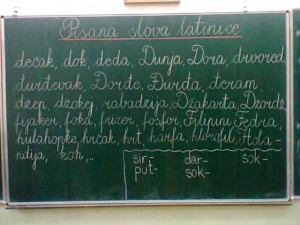 Pisana slova latinice
dečak, dok, deda, Dunja, Dora, drvored,
đurđevak, Đorđe, Đurđa, đeram
džep, džokej, rabadžija, Džakarta, Džordž
fijaker, foka, frizer, fosfor, Filipini, Fedra,
hulahopke, hrčak, hrt, harfa, hlorofil, Hola-
ndija, koh,..
sir- dar- sok-
put- sok-